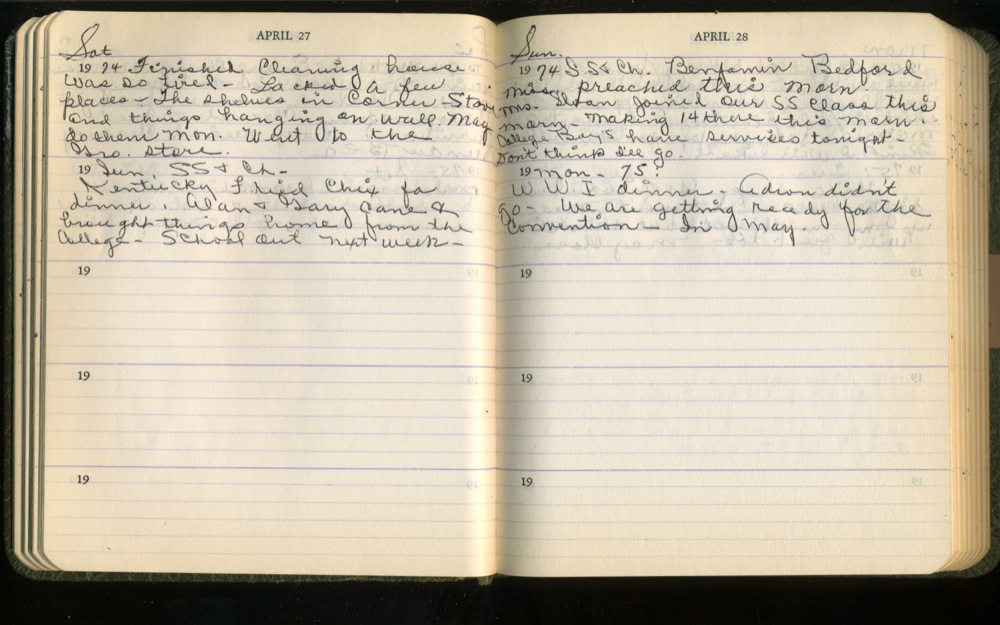 APRIL 27
Sat
1974 Finished Cleaning house
Was so tired - Lacked a few
places - The shelves in Corner - Stove
and things hanging on wall. May
do them Mon. Went to the
Gro. store.
19 Sun. SS + Ch -
Kentucky Fried Chix fo
dinner. Alan + Gary came &
brought things home from the
College - School out next week -
19
19
19
APRIL 28
Sun.
1974 S.S + Ch. Benjamin Bedford
preached this Morn
Mrs. Sloan joined our SS Class this
morn - making 14 there this morn.
College Boy's have services tonight -
Don't think I'll go.
19 Mon - 75?
W.W.I dinner - didn't
go - We are getting ready for the
Convention - In May.
19
19
19